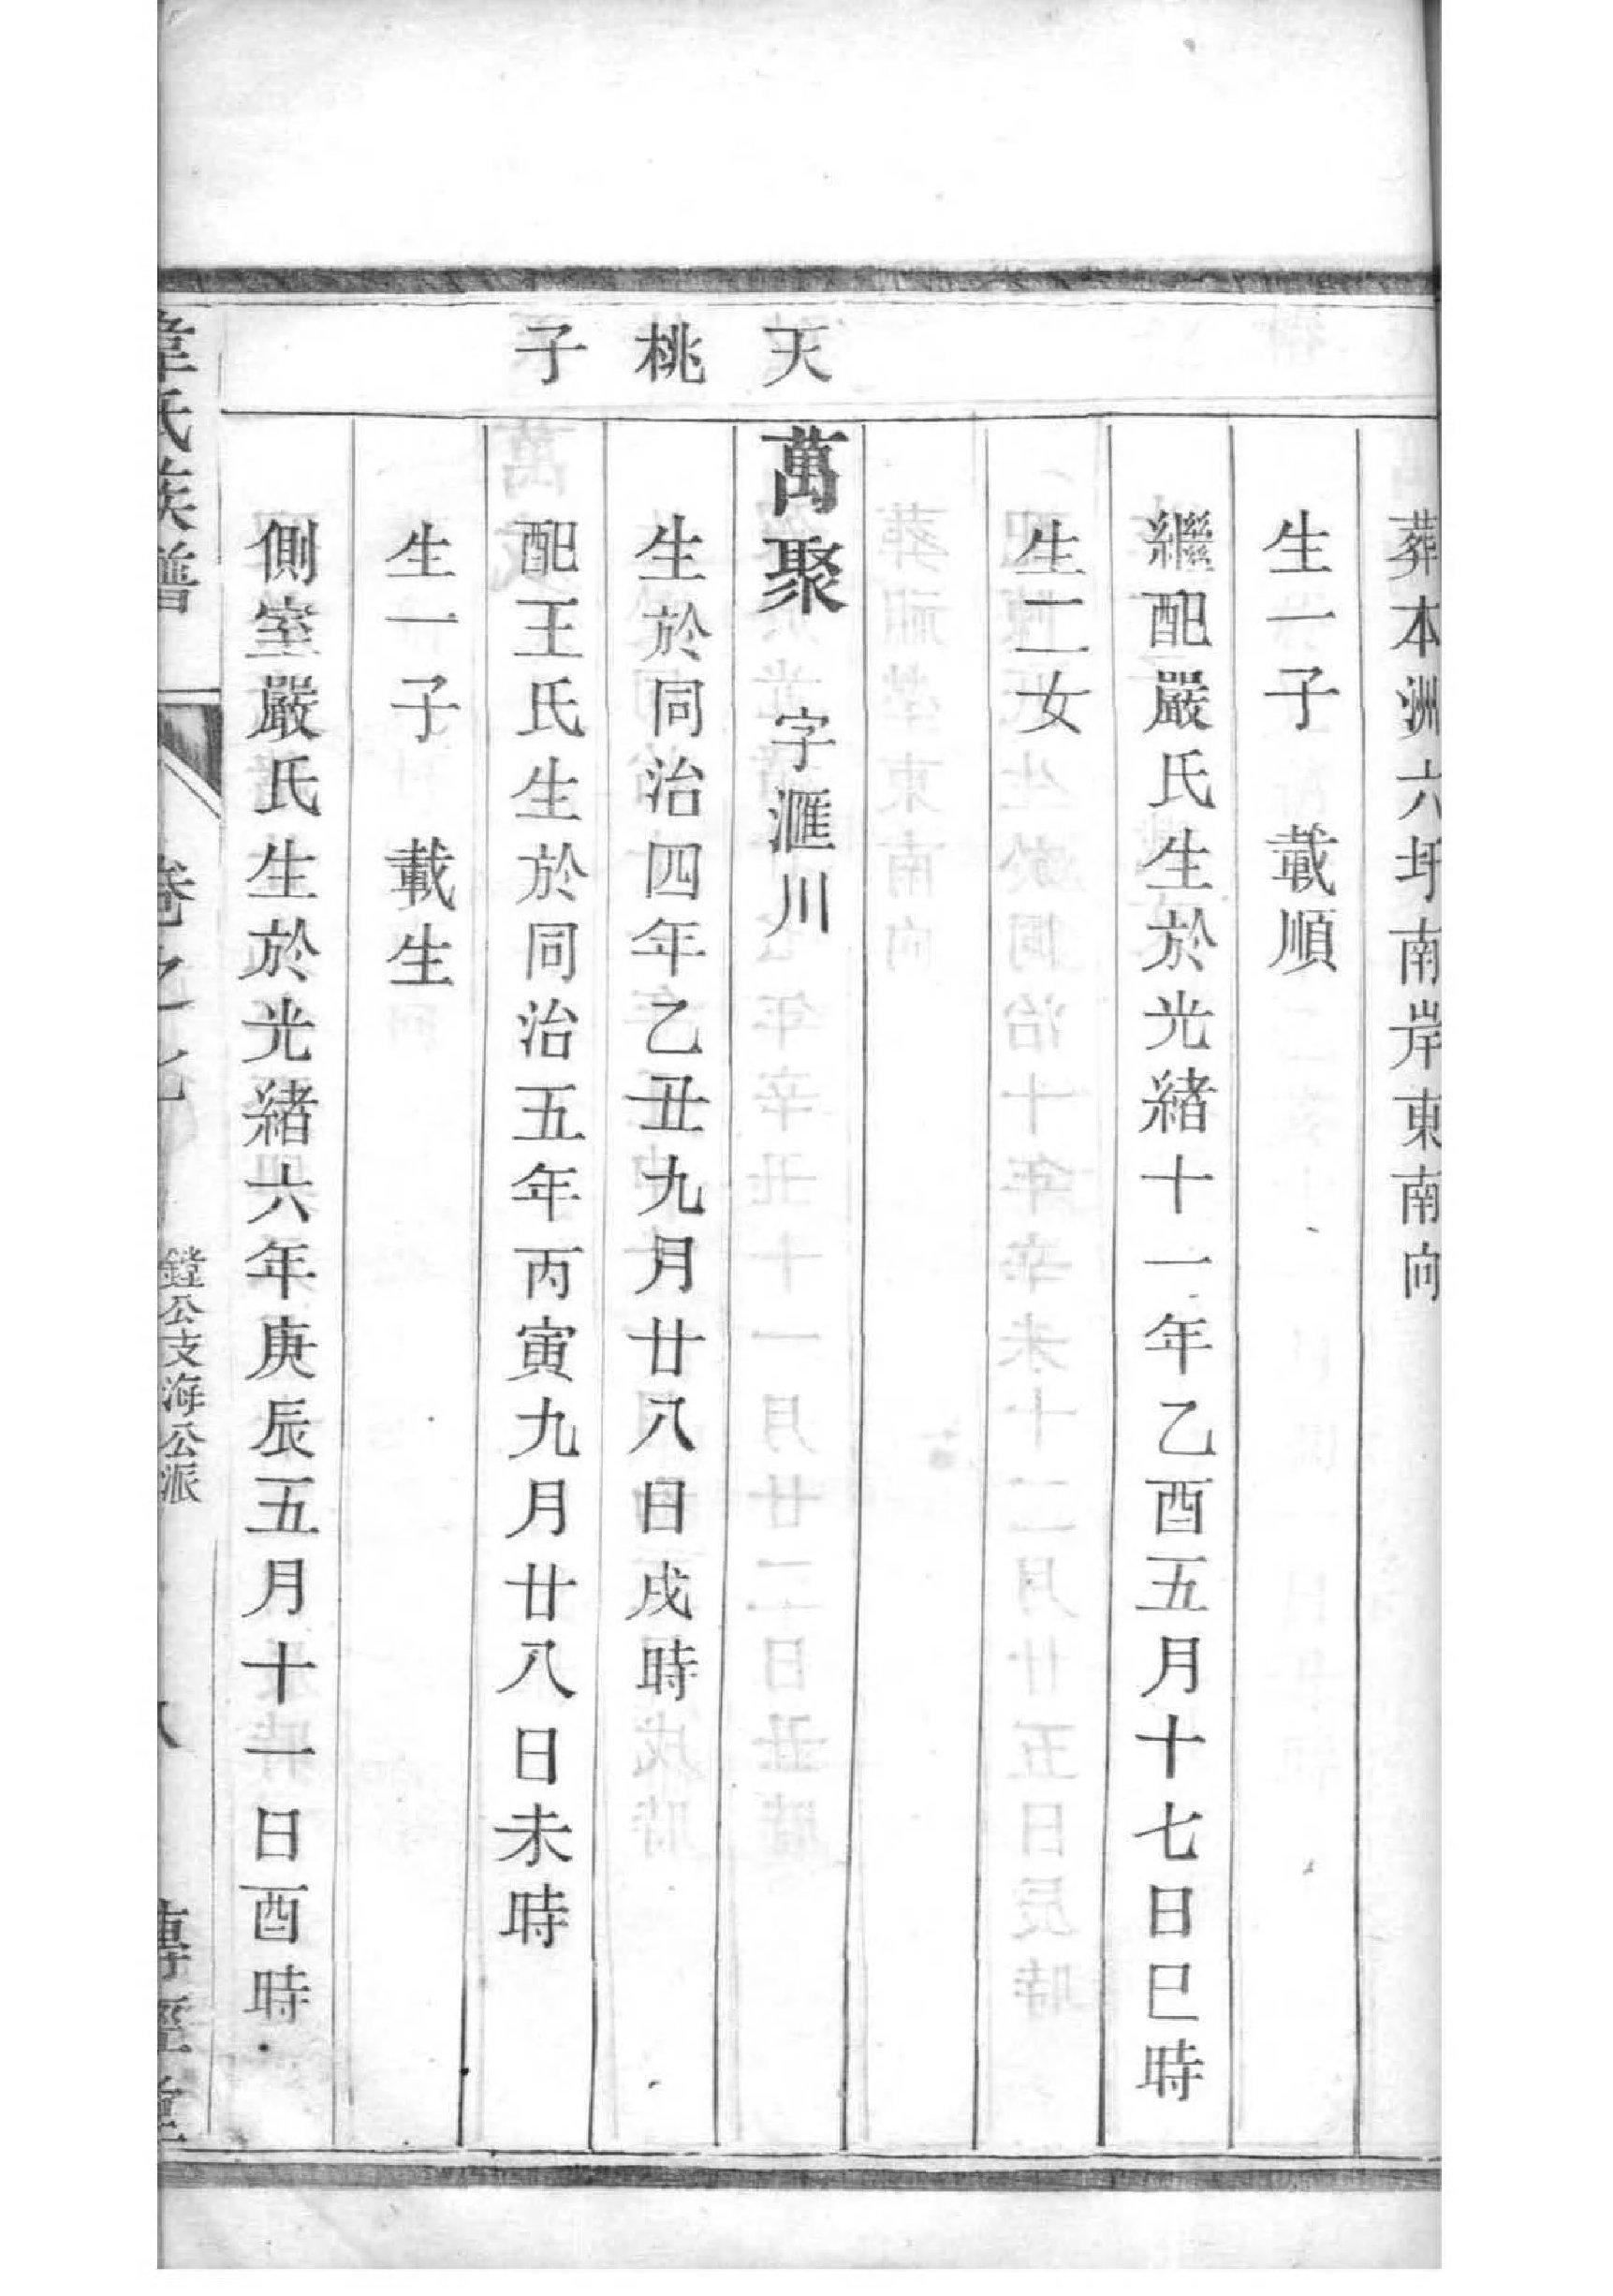 葬本洲六圩南岸東南向
生一子　載順
繼配嚴氏生於光緒十一年乙酉五月十七日巳時
生二女
天桃子
萬聚　字滙川
生於同治四年乙丑九月廿八日戌時
配王氏生於同治五年丙寅九月廿八日未時
生一子　載生
側室嚴氏生於光緒六年庚辰五月十一日酉時
韋氏族譜
卷之七
鏜公支海公派
八
傳經堂